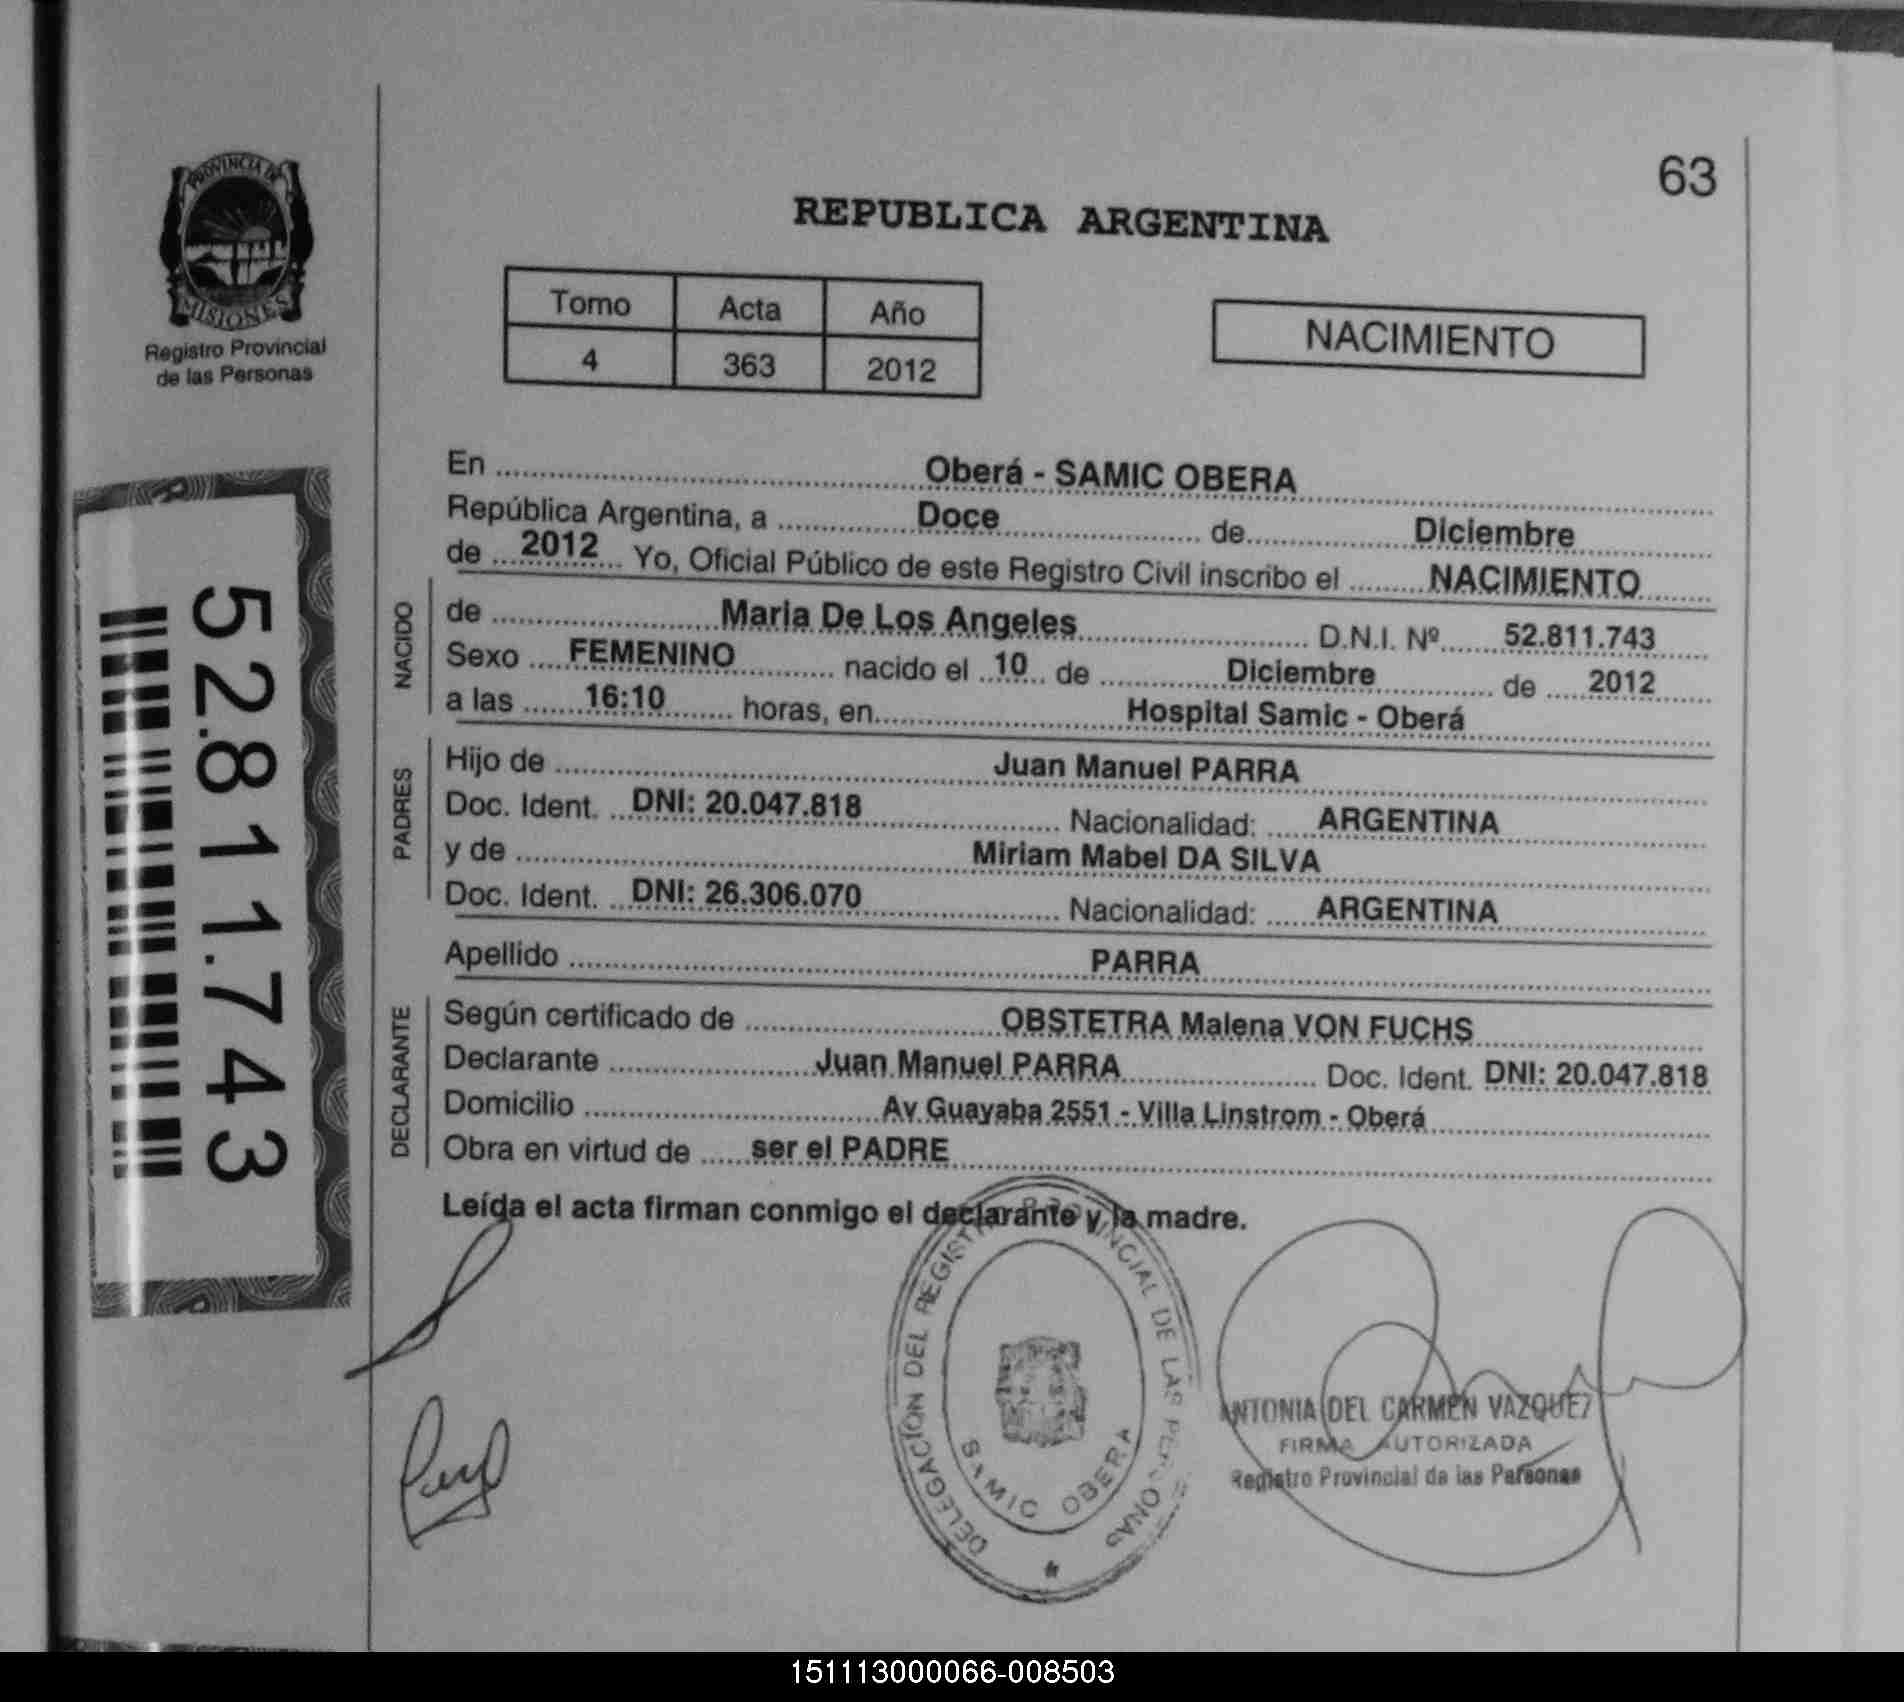 63
PROVINCIA DE
MISIONES
Registro Provincial
de las Personas
REPUBLICA ARGENTINA
Tomo Acta Año
4 363 2012
NACIMIENTO
52.811.743
En Oberá - SAMIC OBERA
República Argentina, a Doce de Diciembre
de 2012 Yo, Oficial Público de este Registro Civil inscribo el NACIMIENTO
NACIDO
de Maria De Los Angeles D.N.I. Nº 52.811.743
Sexo FEMENINO nacido el 10 de Diciembre de 2012
a las 16:10 horas, en Hospital Samic - Oberá
PADRES
Hijo de Juan Manuel PARRA
Doc. Ident. DNI: 20.047.818 Nacionalidad: ARGENTINA
y de Miriam Mabel DA SILVA
Doc. Ident. DNI: 26.306.070 Nacionalidad: ARGENTINA
Apellido PARRA
DECLARANTE
Según certificado de OBSTETRA Malena VON FUCHS
Declarante Juan Manuel PARRA Doc. Ident. DNI: 20.047.818
Domicilio Av Guayaba 2551 - Villa Linstrom - Oberá
Obra en virtud de ser el PADRE
Leída el acta firman conmigo el declarante y la madre.
DELEGACIÓN DEL REGISTRO PROVINCIAL DE LAS PERSONAS
SAMIC OBERA
ANTONIA DEL CARMEN VAZQUEZ
FIRMA AUTORIZADA
Registro Provincial de las Personas
151113000066-008503